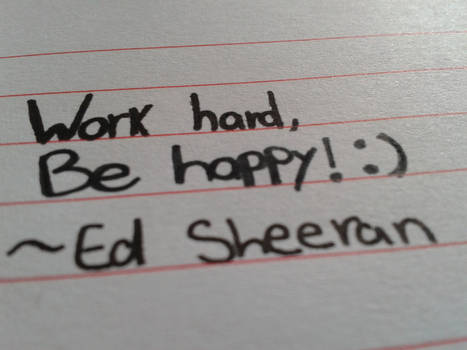 Work hard,
Be happy! :)
~Ed Sheeran